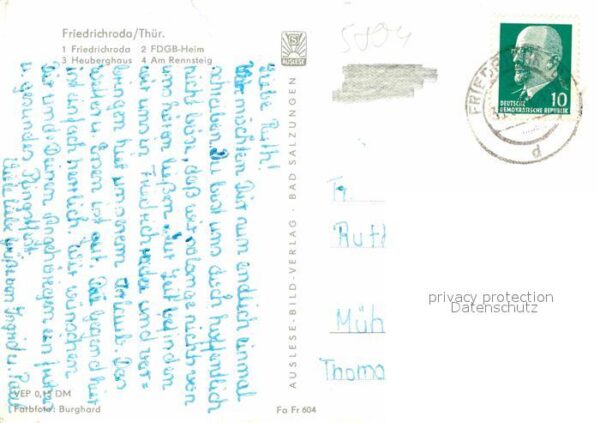 Friedrichroda/Thür.
1 Friedrichroda 2 FDGB-Heim
3 Heuberghaus 4 Am Rennsteig
AUSLESE
5894
FRIED
DEUTSCHE
DEMOKRATISCHE REPUBLIK
10
d
Liebe Ruth!
Wir möchten Dir nun endlich einmal
schreiben. Du bist uns doch hoffentlich
nicht bös, daß wir solange nichts von
uns hören ließen. Zur Zeit befinden
wir uns in Friedrichroda und ver=
bringen hier unseren Urlaub. Das
Wetter u. Essen ist gut. Die Gegend hier
ist einfach herrlich. Wir wünschen
Dir und Deinen Angehörigen ein frohes
u. gesundes Pfingstfest.
Viele liebe Grüße von Ingrid u. Paul
AUSLESE-BILD-VERLAG · BAD SALZUNGEN
Fr.
Rutl
Müh
Thoma
privacy protection
Datenschutz
VEP 0,15 DM
Farbfoto: Burghard
Fa Fr 604